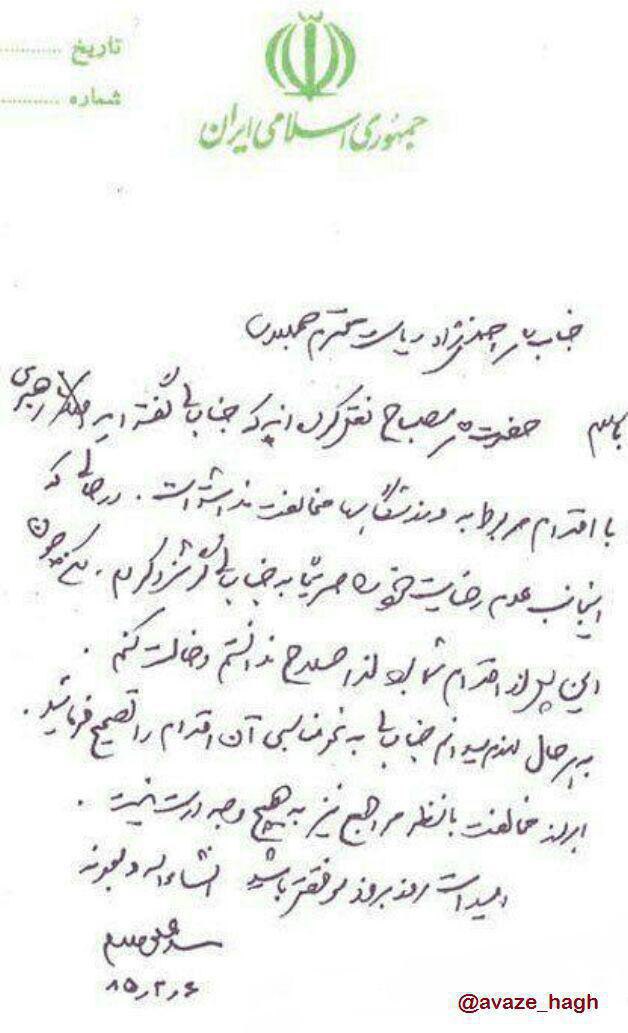 تاریخ ............
شماره ............
جمهوری اسلامی ایران
جناب آقای احمدی نژاد ریاست محترم جمهوری
با سلام حضرت آقای مصباح نقل کرده اند که جنابعالی گفته اید رهبری
با اقدام مربوط به ورزشگاهها مخالفت نداشته است . در حالی که
اینجانب عدم رضایت خود را صریحاً به جنابعالی گوشزد کردم .
این پس از اقدام شما بود لذا صلاح ندانستم دخالت کنم .
به هر حال لازم میدانم جنابعالی به نحو مناسبی آن اقدام را تصحیح فرمائید .
ابراز مخالفت با نظر مراجع نیز به هیچ وجه درست نیست .
امید است روز بروز موفقتر باشید انشاءاله و بعونه
سید علی خامنه
۸۵ر۲ر۶
@avaze_hagh